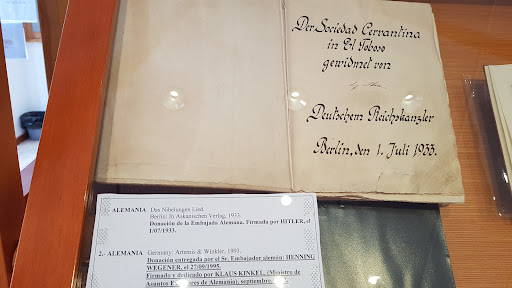 Der Sociedad Cervantina
in El Toboso
gewidmet von
Deutschem Reichskanzler
Berlin, den 1. Juli 1933.
1.- ALEMANIA Das Nibelungen Lied.
Berlin: In Askanischen Verlag, 1933.
Donación de la Embajada Alemana. Firmada por HITLER, el
1/07/1933.
2.- ALEMANIA Germany: Artemis & Winkler, 1993.
Donación entregada por el Sr. Embajador alemán: HENNING
WEGENER, el 27/09/1995.
Firmado y dedicado por KLAUS KINKEL, (Ministro de
Asuntos Exteriores de Alemania), septiembre.